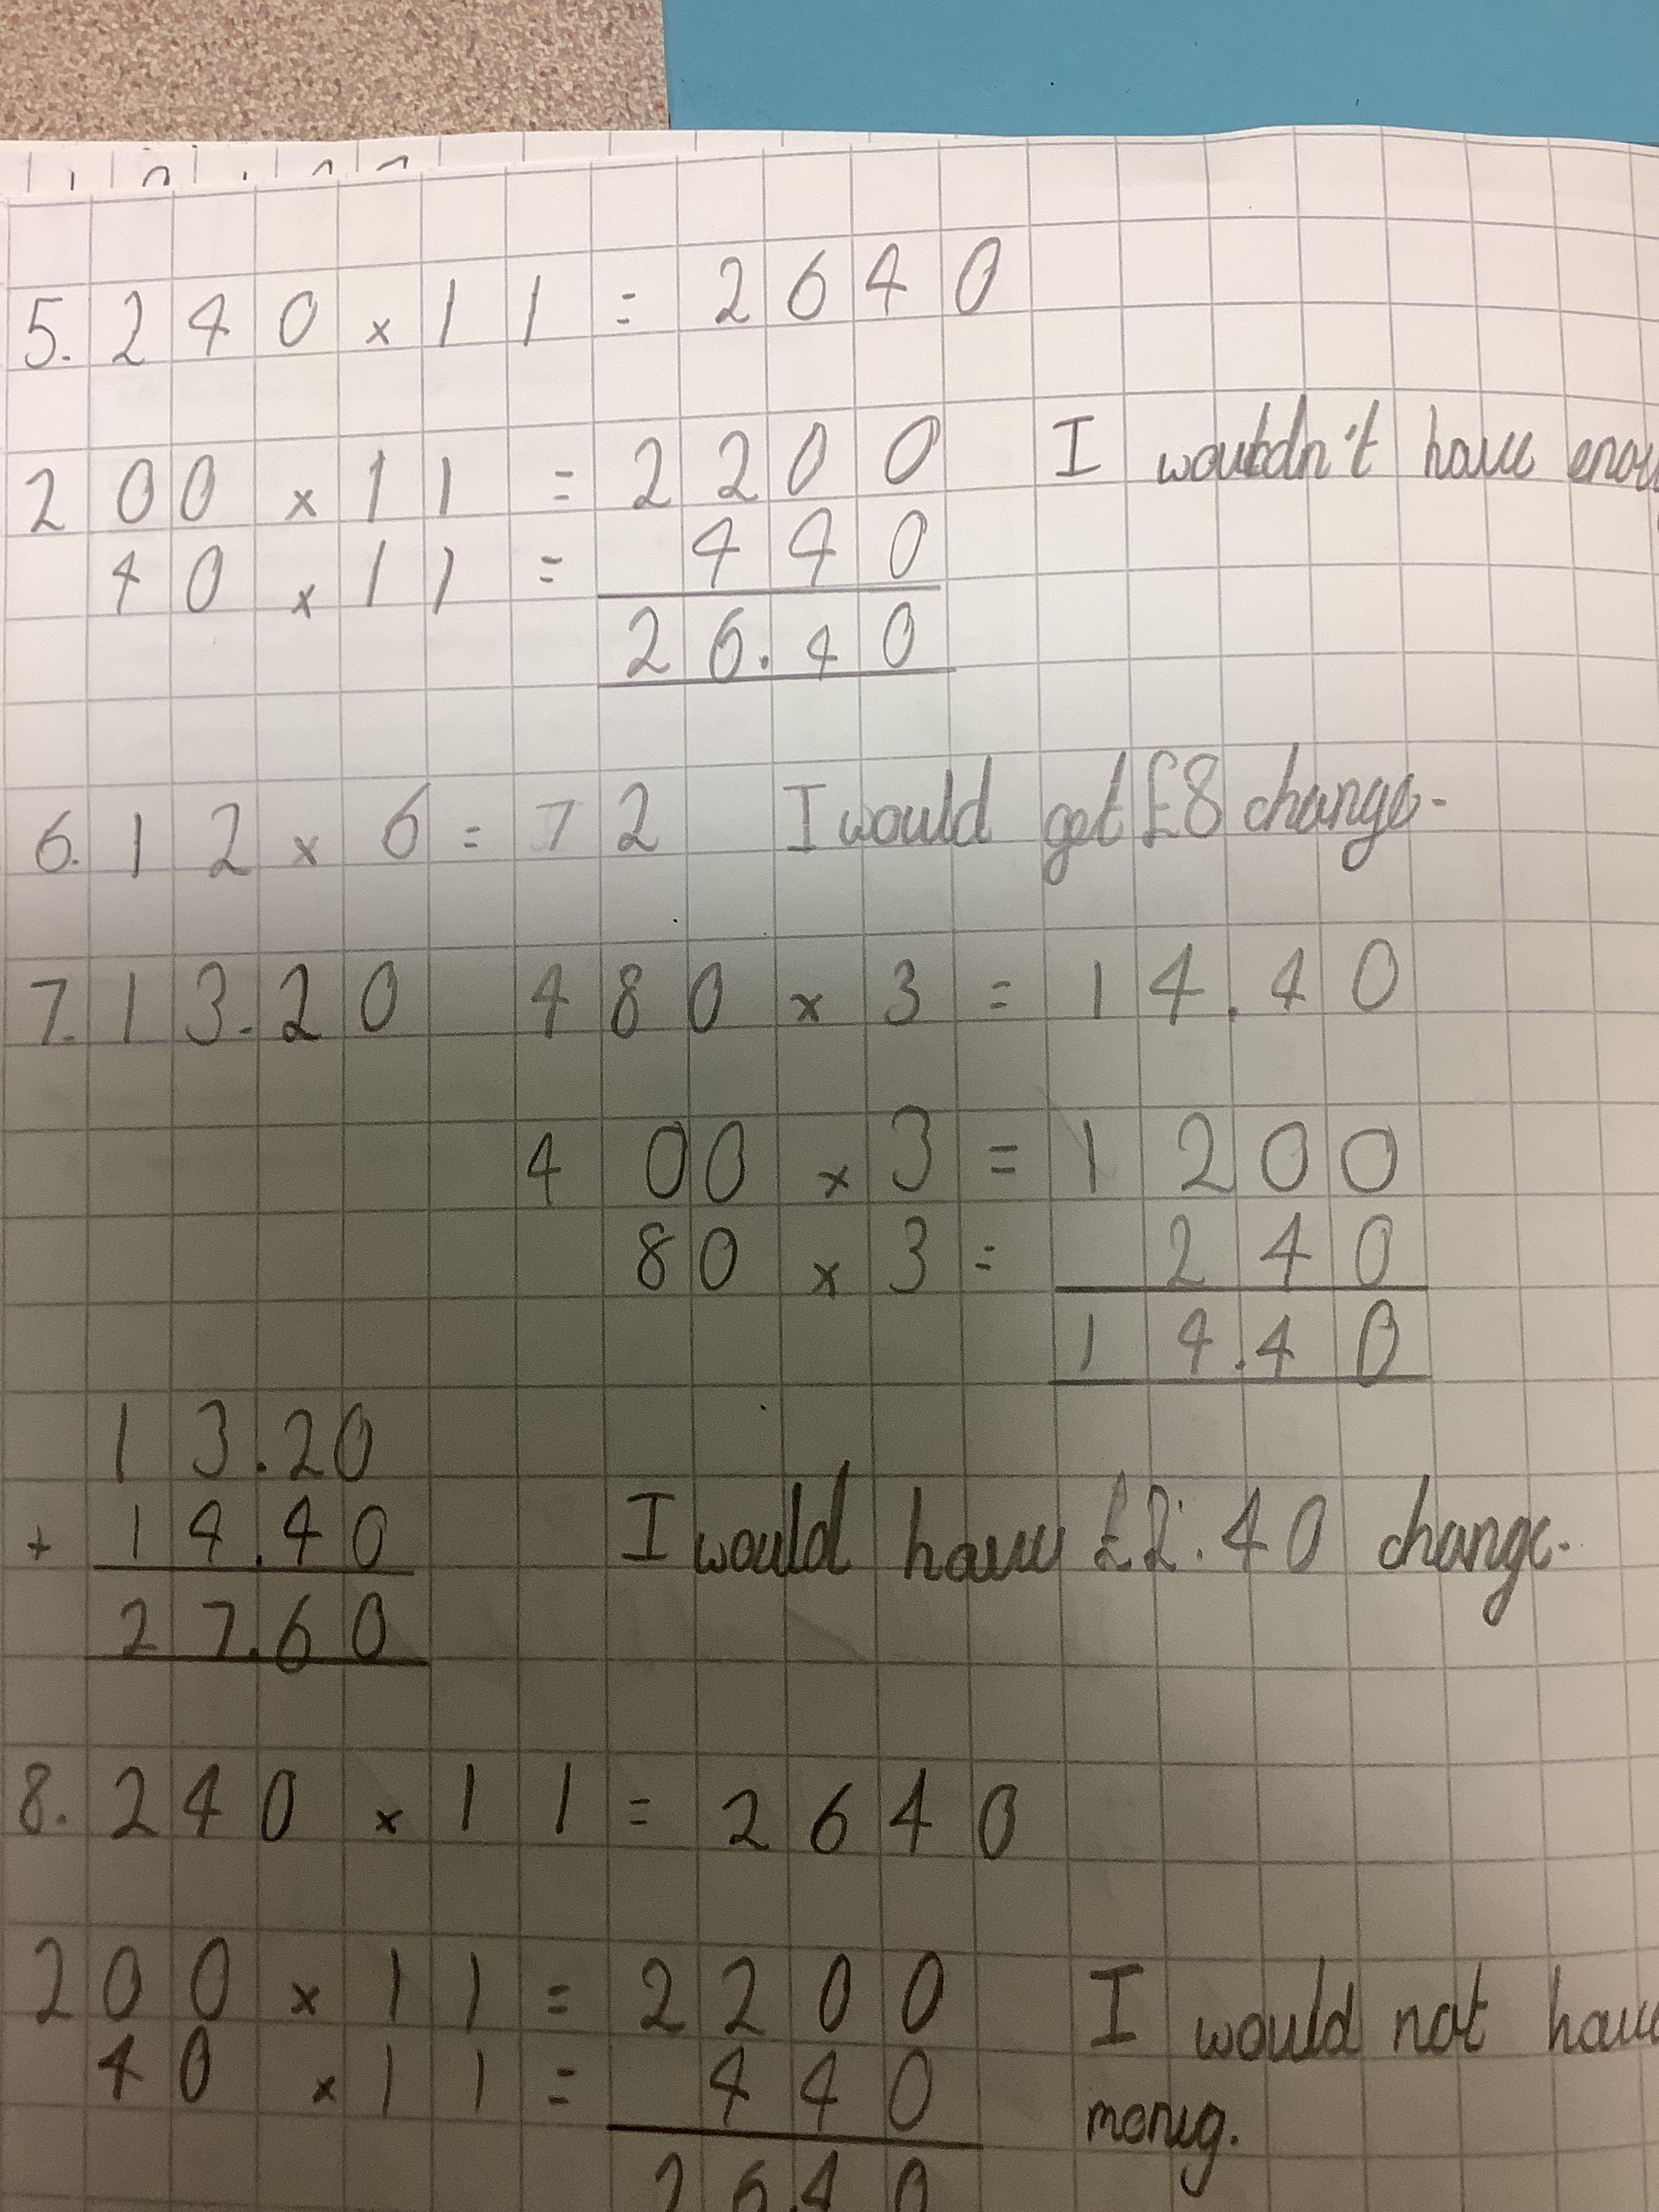 5. 240 × 11 = 2640
200 × 11 = 2200 I wouldn't have
40 × 11 = 440
26.40
6. 12 × 6 = 72 I would get £8 change.
7. 13.20 480 × 3 = 14.40
400 × 3 = 1200
80 × 3 = 240
14.40
13.20
+ 14.40 I would have £2.40 change.
27.60
8. 240 × 11 = 2640
200 × 11 = 2200 I would not have
40 × 11 = 440 money.
26.40